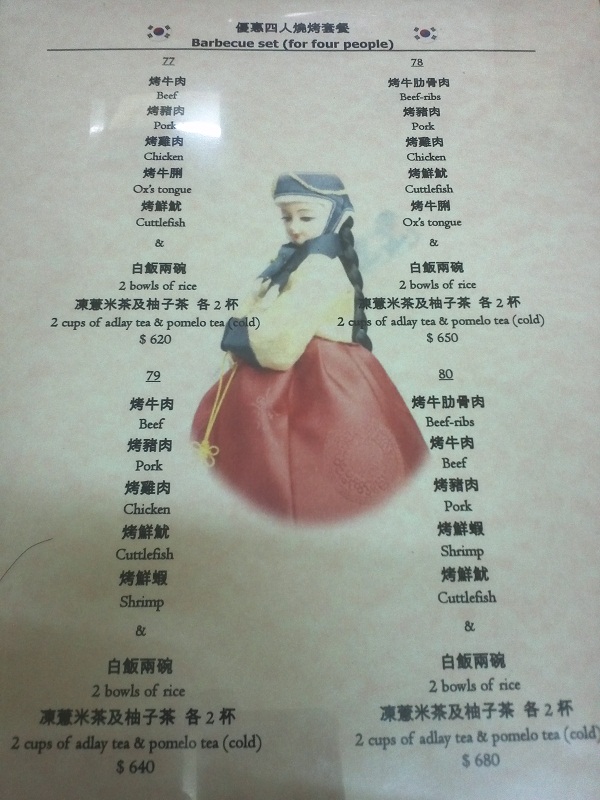 優惠四人燒烤套餐
Barbecue set (for four people)
77
烤牛肉
Beef
烤豬肉
Pork
烤雞肉
Chicken
烤牛脷
Ox's tongue
烤鮮魷
Cuttlefish
&
白飯兩碗
2 bowls of rice
凍薏米茶及柚子茶 各 2 杯
2 cups of adlay tea & pomelo tea (cold)
$ 620
78
烤牛肋骨肉
Beef-ribs
烤豬肉
Pork
烤雞肉
Chicken
烤鮮魷
Cuttlefish
烤牛脷
Ox's tongue
&
白飯兩碗
2 bowls of rice
凍薏米茶及柚子茶 各 2 杯
2 cups of adlay tea & pomelo tea (cold)
$ 650
79
烤牛肉
Beef
烤豬肉
Pork
烤雞肉
Chicken
烤鮮魷
Cuttlefish
烤鮮蝦
Shrimp
&
白飯兩碗
2 bowls of rice
凍薏米茶及柚子茶 各 2 杯
2 cups of adlay tea & pomelo tea (cold)
$ 640
80
烤牛肋骨肉
Beef-ribs
烤牛肉
Beef
烤豬肉
Pork
烤鮮蝦
Shrimp
烤鮮魷
Cuttlefish
&
白飯兩碗
2 bowls of rice
凍薏米茶及柚子茶 各 2 杯
2 cups of adlay tea & pomelo tea (cold)
$ 680